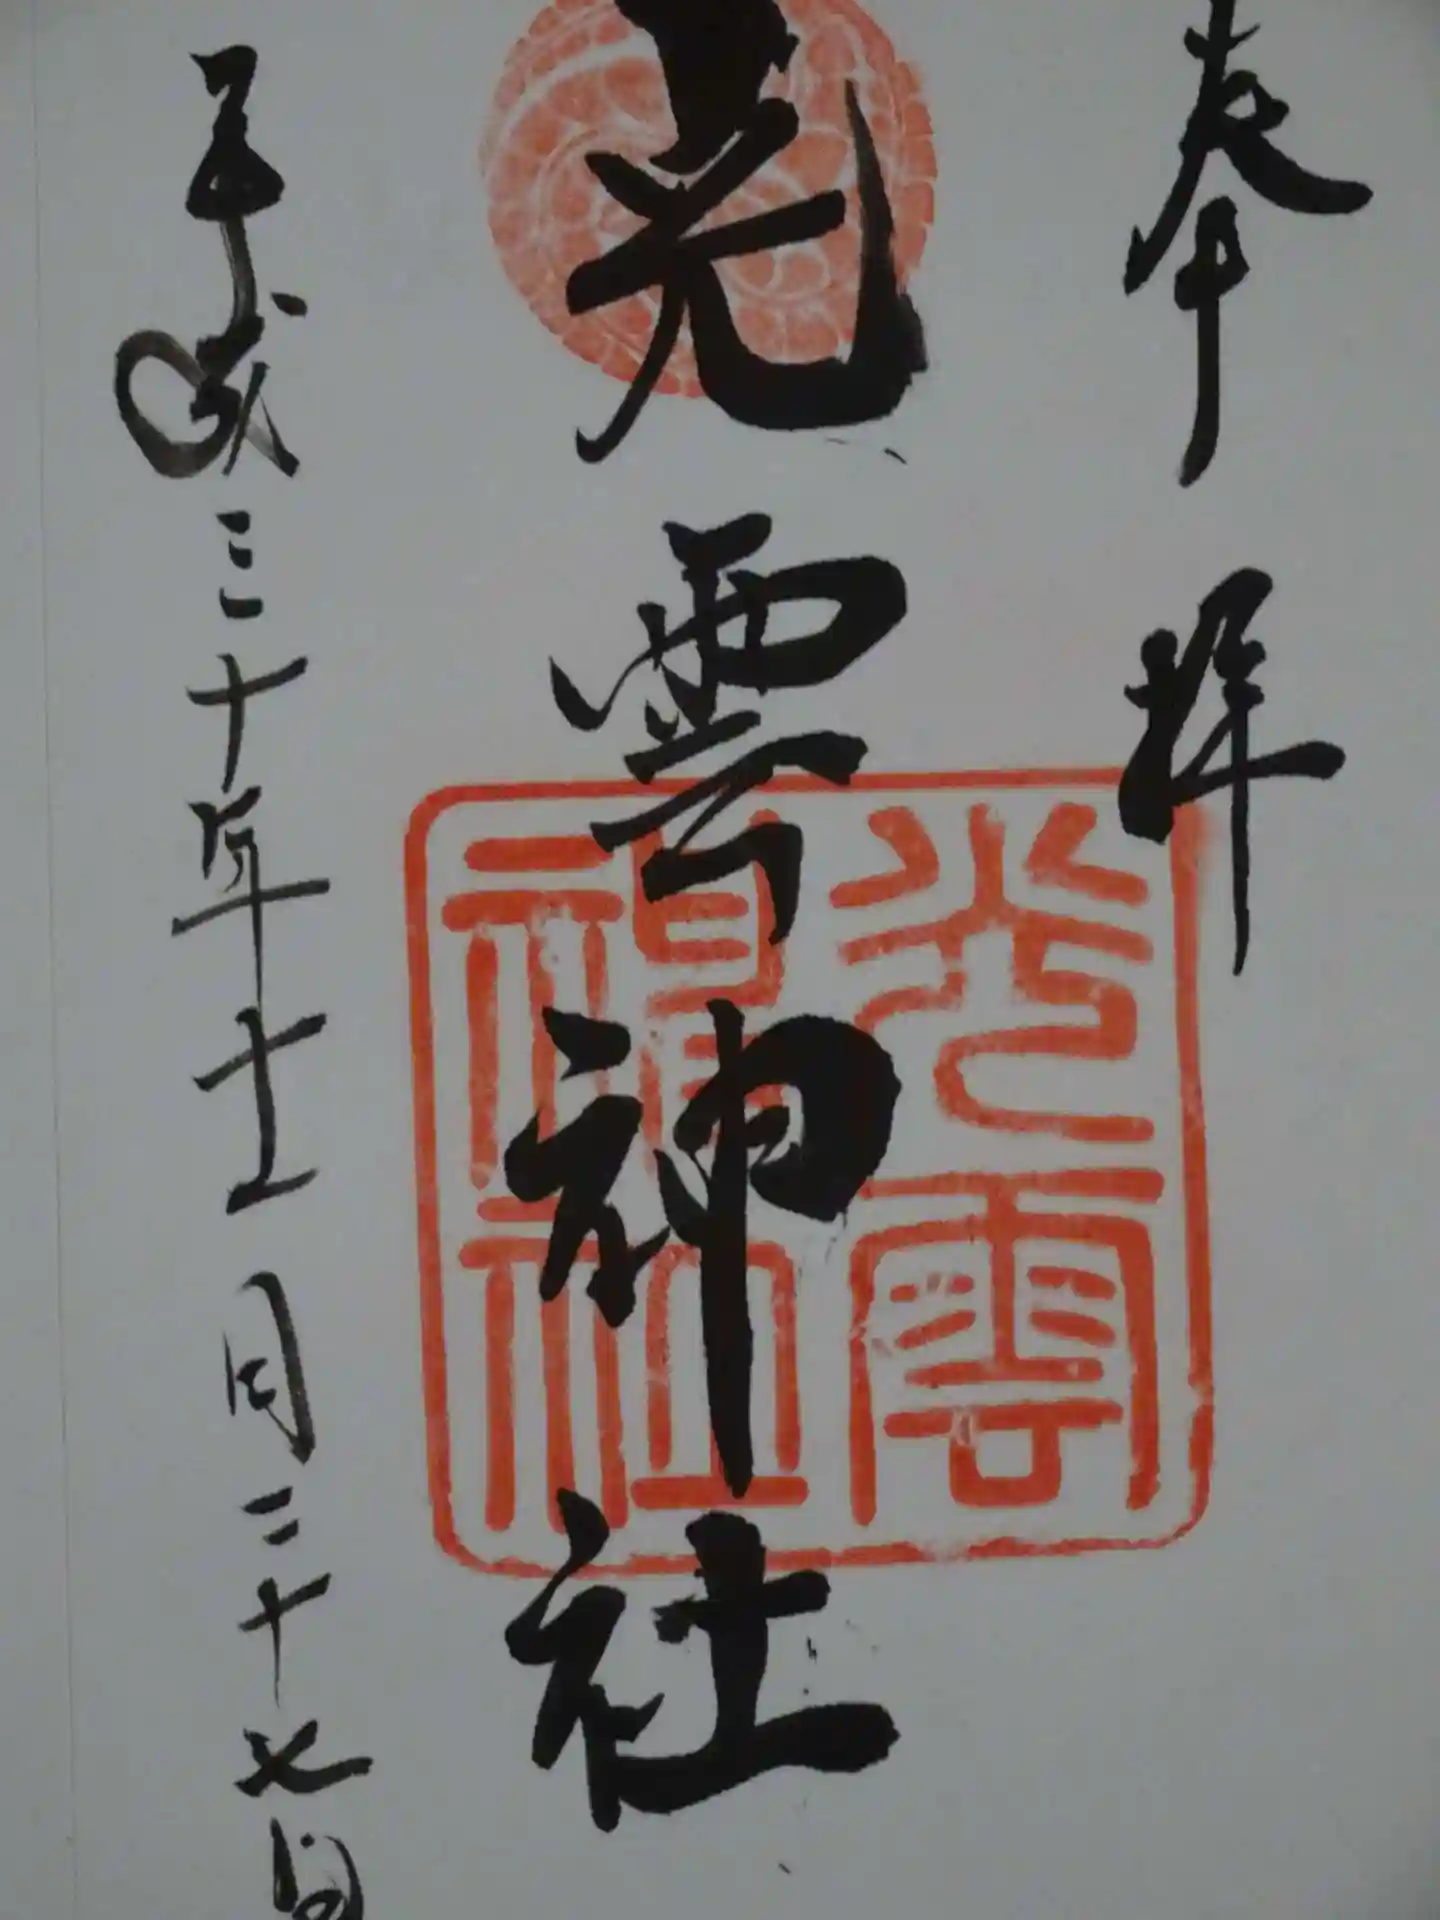 奉拝
光雲神社
光雲神社
平成三十年十一月二十七日